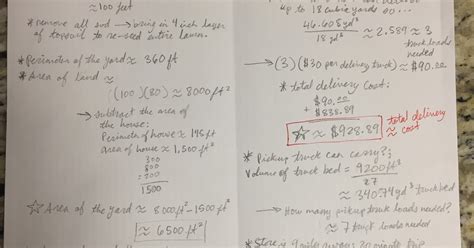 ≈ 100 feet
* remove all sod → bring in 4 inch layer
of topsoil to re-seed entire lawn.
* Perimeter of the yard ≈ 360 ft
* Area of Land ≈
(100)(80) ≈ 8000 ft²
→ subtract the area of
the house:
Perimeter of house ≈
area of house ≈ 1,500 ft²
300
1500
☆ Area of the yard ≈ 8000 ft² - 1500 ft²
≈ 6500 ft²
up to 18 cubic yards so...
46.608 yd³
18 yd³
≈ 2.589 ≈ 3
truck loads
needed
→ (3)($30 per delivery truck) ≈ $90.00
* total delivery cost:
$90.00
+ $838.89
☆ ≈ $928.89
total delivery
≈ cost
* Pickup truck can carry?:
Volume of truck bed = 9200 ft³
27
≈ 340.74 yd³ truck bed
→ How many pickup truck loads needed?
≈ 7 truck loads needed
* Store is 9 miles